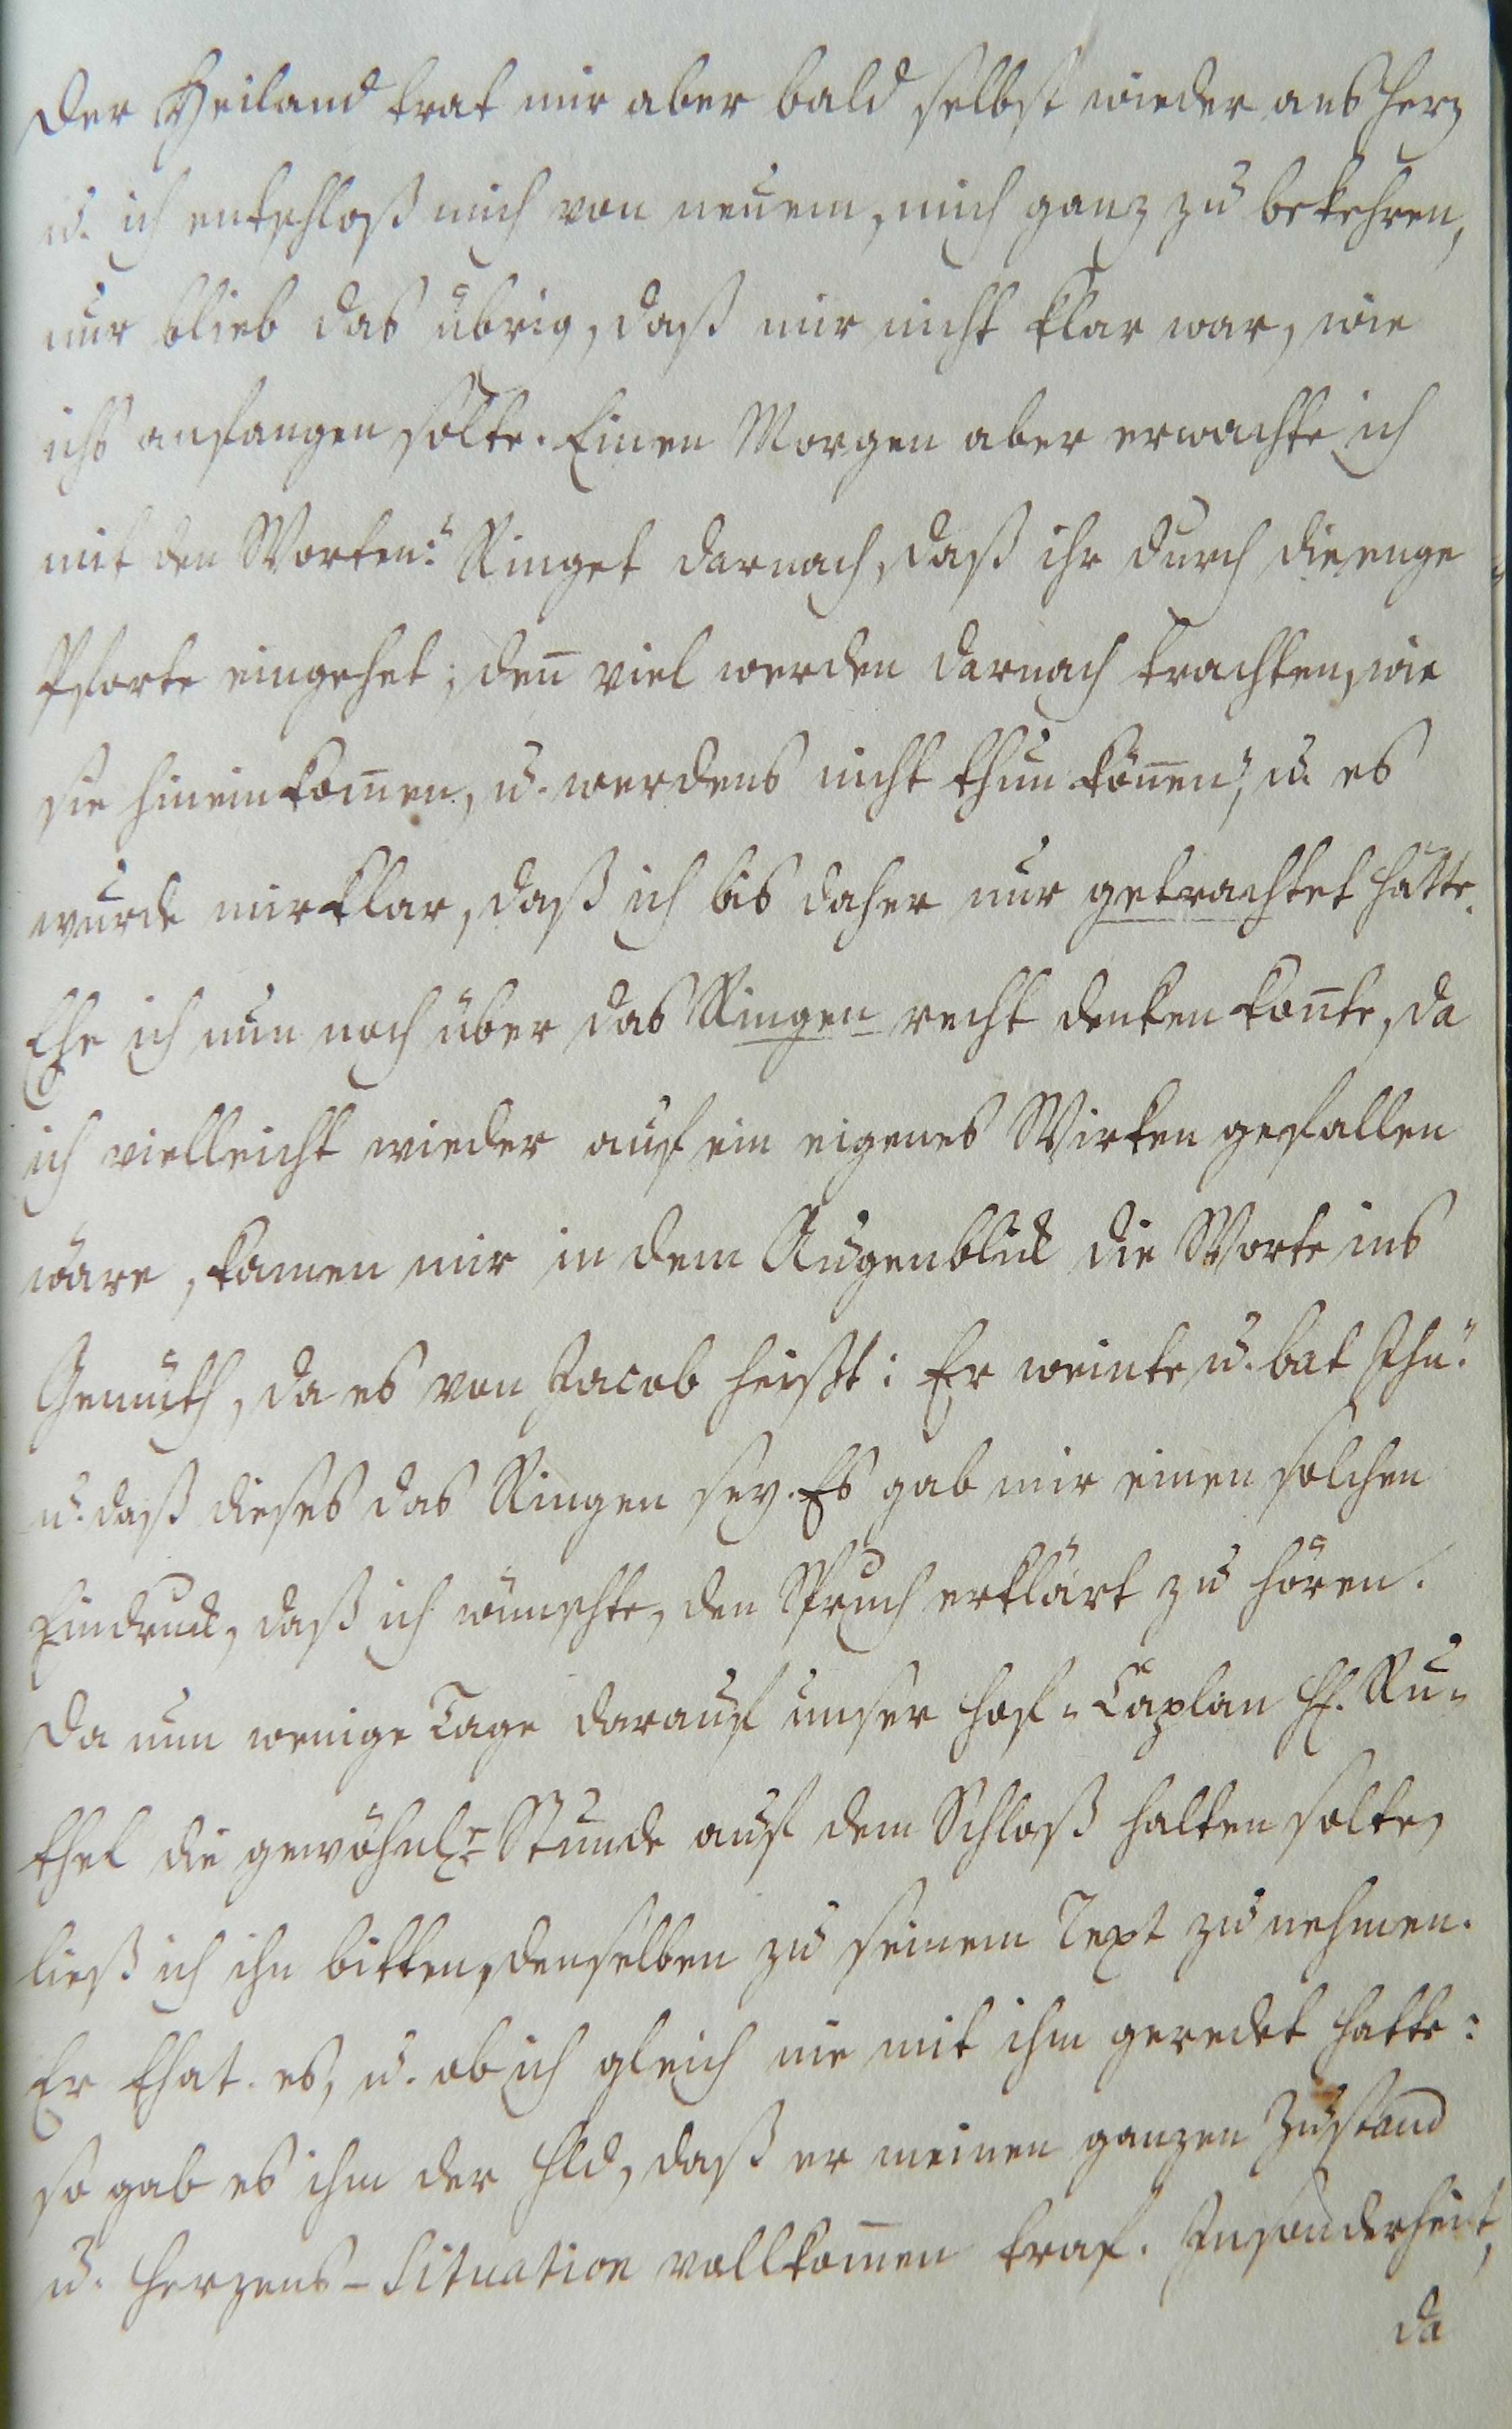 Der Heiland trat mir aber bald selbst wieder ans Herz
u. ich entschloß mich von neuem, mich ganz zu bekehren,
nur blieb das übrig, daß mir nicht klar war, wie
ichs anfangen solte. Einen Morgen aber erwachte ich
mit den Worten: "Ringet darnach, daß ihr durch die enge
Pforte eingehet; deñ viel werden darnach trachten, wie
sie hineinkom̄en, u. werdens nicht thun kön̄en", u. es
wurde mir klar, daß ich bis daher nur getrachtet hatte.
Ehe ich nun noch über das Ringen recht denken kon̄te, da
ich vielleicht wieder auf ein eigenes Wirken gefallen
wäre, kamen mir in dem Augenblick die Worte ins
Gemüth, da es von Jacob heißt: Er weinte u. bat Ihn."
u. daß dieses das Ringen sey. Es gab mir einen solchen
Eindruck, daß ich wünschte, den Spruch erklärt zu hören.
Da nun wenige Tage darauf unser Hof-Caplan H. Ru-
thel die gewöhnl. Stunde auf dem Schloß halten solte,
ließ ich ihn bitten, denselben zu seinem Text zu nehmen.
Er that es, u. ob ich gleich nie mit ihm geredet hatte:
so gab es ihm der Hld, daß er meinen ganzen Zustand
u. Herzens-Situation vollkom̄en traf. Insonderheit,
da